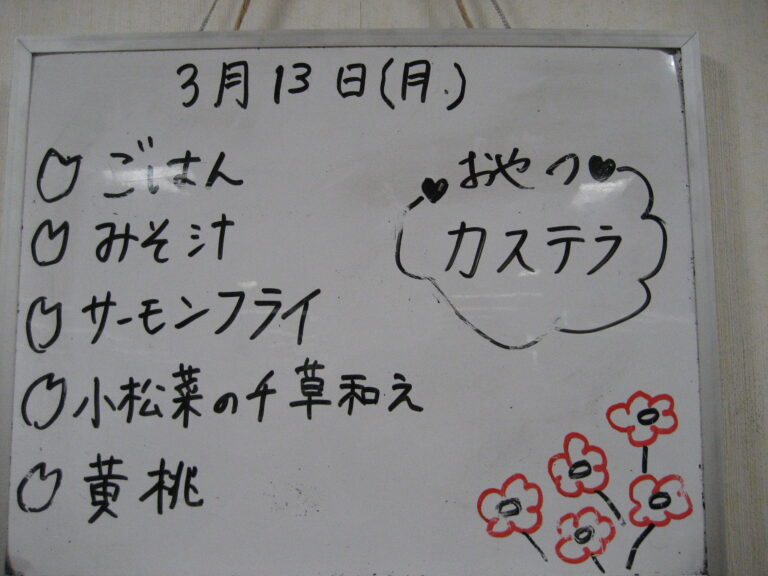 3月13日(月.)
ごはん
みそ汁
サーモンフライ
小松菜の千草和え
黄桃
おやつ
カステラ